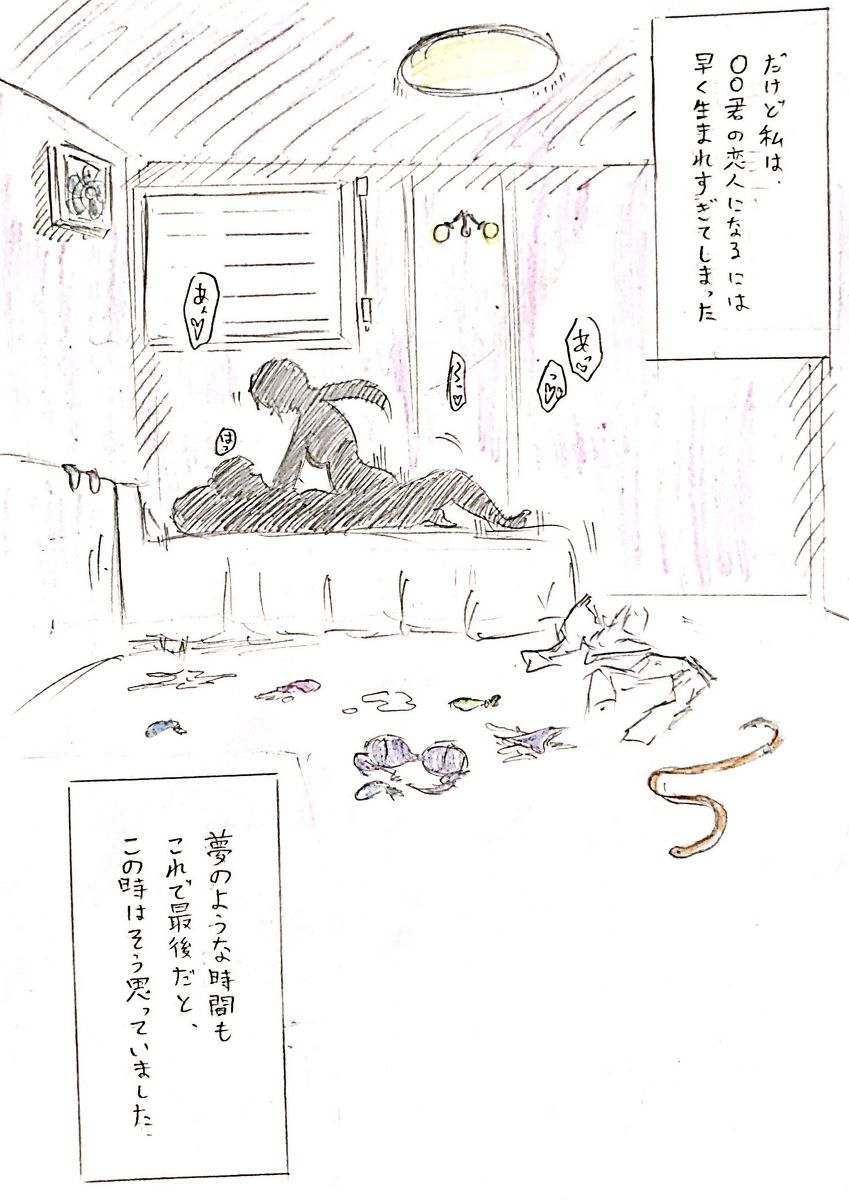 だけど私は、
〇〇君の恋人になるには
早く生まれすぎてしまった
あっ
あぁ♡
っ♡
はっ
夢のような時間も
これで最後だと、
この時はそう思っていました